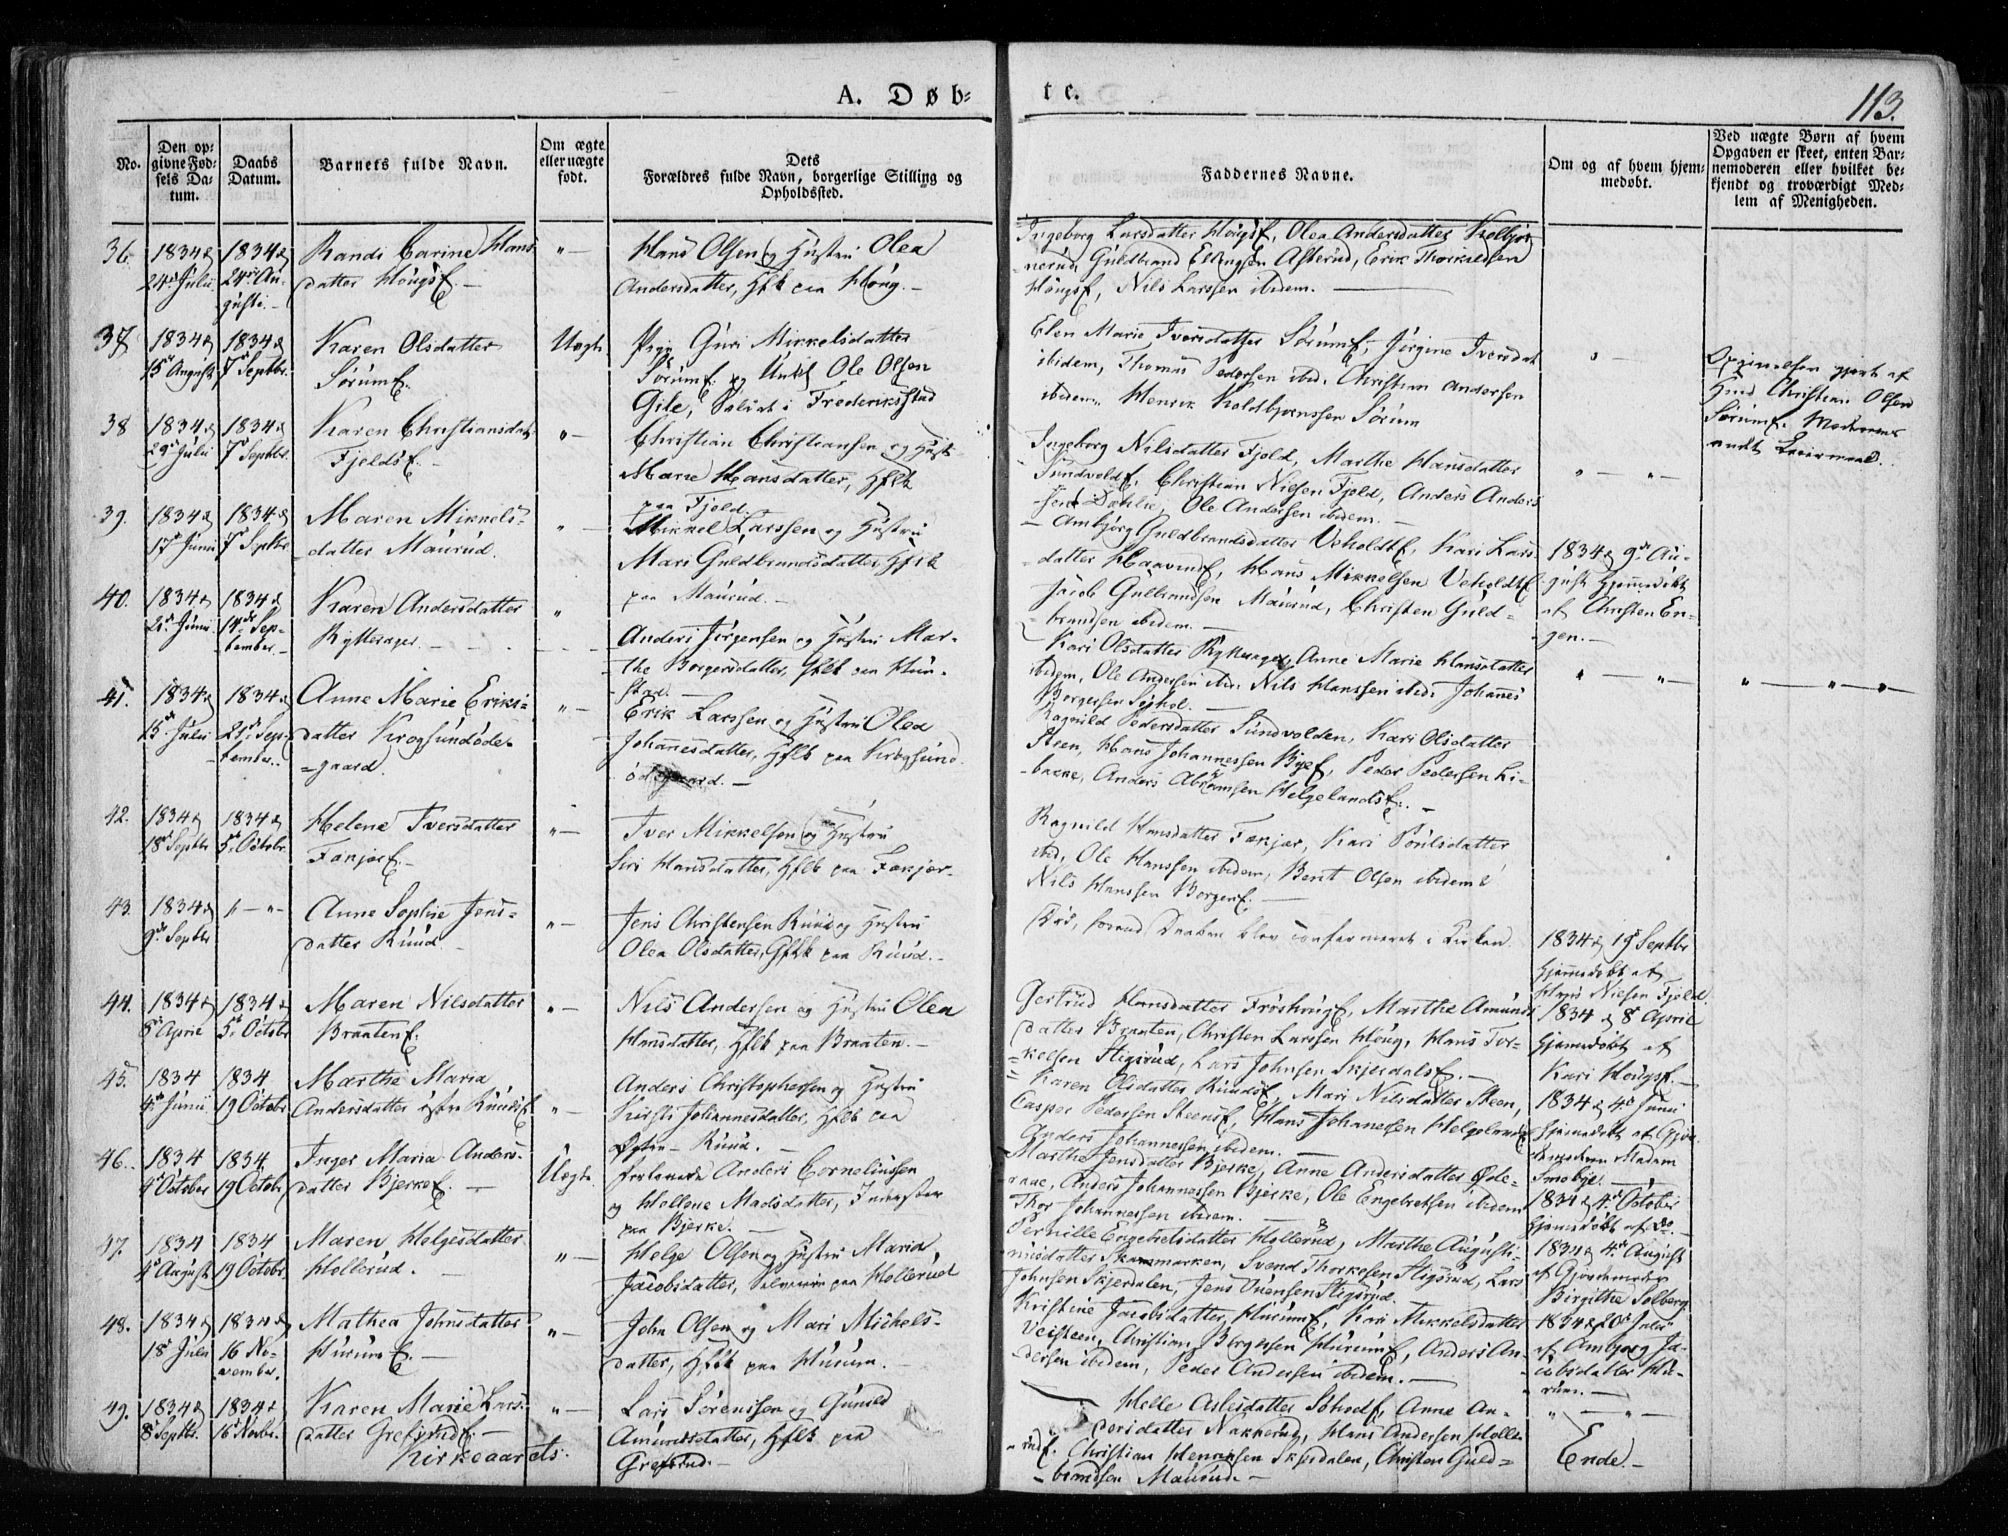 A. Døb=
te.
113.
No.
Den op=
givne Fød=
sels Da=
tum.
Daabs
Datum.
Barnets fulde Navn.
Om ægte
eller uægte
født.
Dets
Forældres fulde Navn, borgerlige Stilling og
Opholdssted.
Faddernes Navne.
Om og af hvem hjem=
medøbt.
Ved uægte Børn af hvem
Opgaven er skeet, enten Bar=
nemoderen eller hvilket be=
kjendt og troværdigt Med=
lem af Menigheden.
36.
1834
24de Julii
1834
24de Au-
gusti.
Randi Carine Hans
datter Høugs
Hans Olsen og Hustru Olea
Andersdatter, Hflk paa Høug.
Ingeborg Larsdatter Høugs, Olea Andersdatter Kolbjør
nerud, Guldbrand Ellingsen Asterud, Erik Thorkildsen
Høugs, Nils Larssen ibidem.
37
1834
15de August
1834
7de Septbr.
Karen Olsdatter
Sørum
Uægte
Pige Guri Mikkelsdatter
Sørum og Unkl Ole Olsen
Gile, Soldat i Frederiksstad
Elen Marie Iversdatter Sørum, Jørgine Iversdat
ibidem, Thomas Pedersen ibid. Christian Andersen
ibidem. Henrik Koldbjørnssen Sørum
gjort af
Christian Olsen
Sørum. Moderens
andet Leiermaal.
38
1834
29de Julii
1834
7de Septbr.
Karen Christiansdat
Fjelds
Christian Christiansen og Hust
Marie Hansdatter, Hflk
paa Fjeld.
Ingeborg Nilsdatter Fjeld, Marthe Hansdatter
Sundvold, Christian Nilsen Fjeld, Anders Anders
sen Dæhlie, Ole Andersen ibidem.
39.
1834
17de Junii
1834
7de Septbr
Maren Mikkels-
datter Maurud.
Mikkel Larssen og Hustru
Mari Guldbrandsdatter Hflk
paa Maurud.
Ambjørg Guldbrandsdatter Veholdt, Kari Lars-
datter Haavind, Hans Mikkelsen Veholdt
Jacob Gulbrandsen Maurud, Christen Guld=
brandsen ibidem.
1834 9de Au-
gust Hjemmedøbt
af Christen En-
gen.
40.
1834
21de Junii
1834
14de Sep-
tember.
Karen Andersdatter
Rytterager.
Anders Jørgensen og Hustru Mar-
the Borgersdatter, Hflk paa Hun-
stad.
Kari Olsdatter Rytterager, Anne Marie Hansdatter
ibidem, Ole Andersen ibid. Nils Hanssen ibid. Johanes
Borgersen
41.
1834
15de Julii
1834
21de Sep-
tember.
Anne Marie Eriks=
datter Krogsundøde-
=gaard.
Erik Larssen og Hustru Olea
Johannesdatter, Hflk paa Krogsund
ødegaard.
Ragnild Pedersdatter Sundvolden, Kari Olsdatter
Steen, Hans Johannessen Bye, Peder Pedersen Li-
bakke, Anders Abramsen Helgelands.
42.
1834
18de Septbr
1834
5te Octobr.
Helene Iversdatter
Fækjær
Iver Mikkelsen og Hustru
Siri Hansdatter, Hflk paa Fækjær.
Ragnild Hansdatter Fækjær, Kari Poulsdatter
ibid, Ole Hanssen ibidem, Berit Olsen ibidem
Nils Hanssen Borgen.
43.
1834
9de Septbr
Anne Sophie Jens=
datter Ruud
Jens Christensen Ruud og Hustru
Olea Olsdatter, Gflk paa Ruud.
Død, forend Daaben blev confirmeret i Kirken.
1834 19de Septbr
Hjemmedøbt af
Hans Nielsen Fjeld.
44.
1834
8de April
1834
5te Octobr
Maren Nilsdatter
Braaten.
Nils Andersen og Hustru Olea
Hansdatter, Hflk paa Braaten.
Gertrud Hansdatter Frøshoug, Marthe Amunds
datter Braaten, Christen Larssen Høug, Hans Tor=
=kelsen Stigsrud, Lars Johnsen Skjerdals.
1834 8de April
Hjemmedøbt af
Kari Høugs.
45.
1834
4de Junii
1834
19 Octobr.
Marthe Maria
Andersdatter Ruud
Anders Christophersen og Hustru
Kirsti Johannesdatter, Hflk paa
Østen-Ruud.
Karen Olsdatter Ruuds, Mari Nilsdatter Steen,
Casper Pedersen Steens, Hans Johannessen Helgeland
Anders Johannessen ibidem.
1834 4de Junii
Hjemmedøbt af Gjor-
demoderen Madam
Smebye.
46.
1834
4de October
1834
19 Octobr.
Inger Maria Anders-
datter Bjerke.
Uægte.
Forlovede Anders Corneliussen
og Hellene Madsdatter, Inderster
paa Bjerke.
Marthe Jensdatter Bjerke, Anne Andersdatter Øde-
raae, Anders Johannessen Bjerke, Ole Engebretsen ibidem
Thor Johannessen ibidem.
1834 4de October
Hjemmedøbt af do.
47.
1834
4de August
1834
19 Octobr.
Maren Helgesdatter
Hollerud.
Helge Olsen og Hustru Maria
Jacobsdatter, paa Hollerud
Pernille Engebretsdatter Hollerud, Marthe Augusti-
nusdatter Skammarken, Svend Thorkelsen Stigsrud, Lars
Johnsen Skjerdalen, Jens Svensen Stigsrud.
1834 4de August
af Gjordemoder
Birgithe Solberg.
48.
1834
18de Julii
1834
16 No-
vember.
Mathea Johnsdatter
Hurum.
John Olsen og Mari Michels-
datter, Hflk paa Hurum.
Kristine Jacobsdatter Hurum, Kari Mikkelsdatter
Veisteen, Christian Borgersen Hurum, Anders An-
dersen ibidem, Peder Andersen ibidem.
1834 20de Julii
af Ambjørg Ja-
cobsdatter Hu-
rum.
49.
1834
8de Septbr.
1834
16 Novbr.
Karen Marie Lars-
datter Grefsrud.
Lars Sørenssen og Gunild
Amundsdatter, Hflk paa
Grefsrud.
Helle Aslesdatter Anne An-
dersdatter Nakkerud, Hans Andersen Holle-
rud. Christian Henriksen Skjerdalen, Christen Guld=
brandsen Maurud.
Kirkeaarets
Ende.